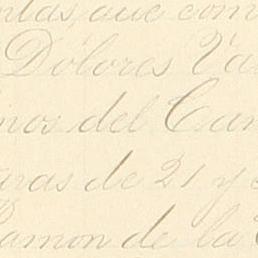 que com
Dolores Va
nos del Cam
ras de 21 y
Ramon de la